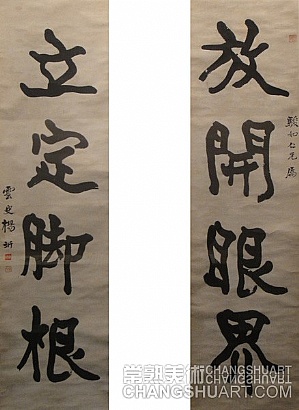 放開眼界
駿如仁兄屬
立定脚根
雲史楊圻
常熟美術CHANGSHUART
CHANGSHUART.COM